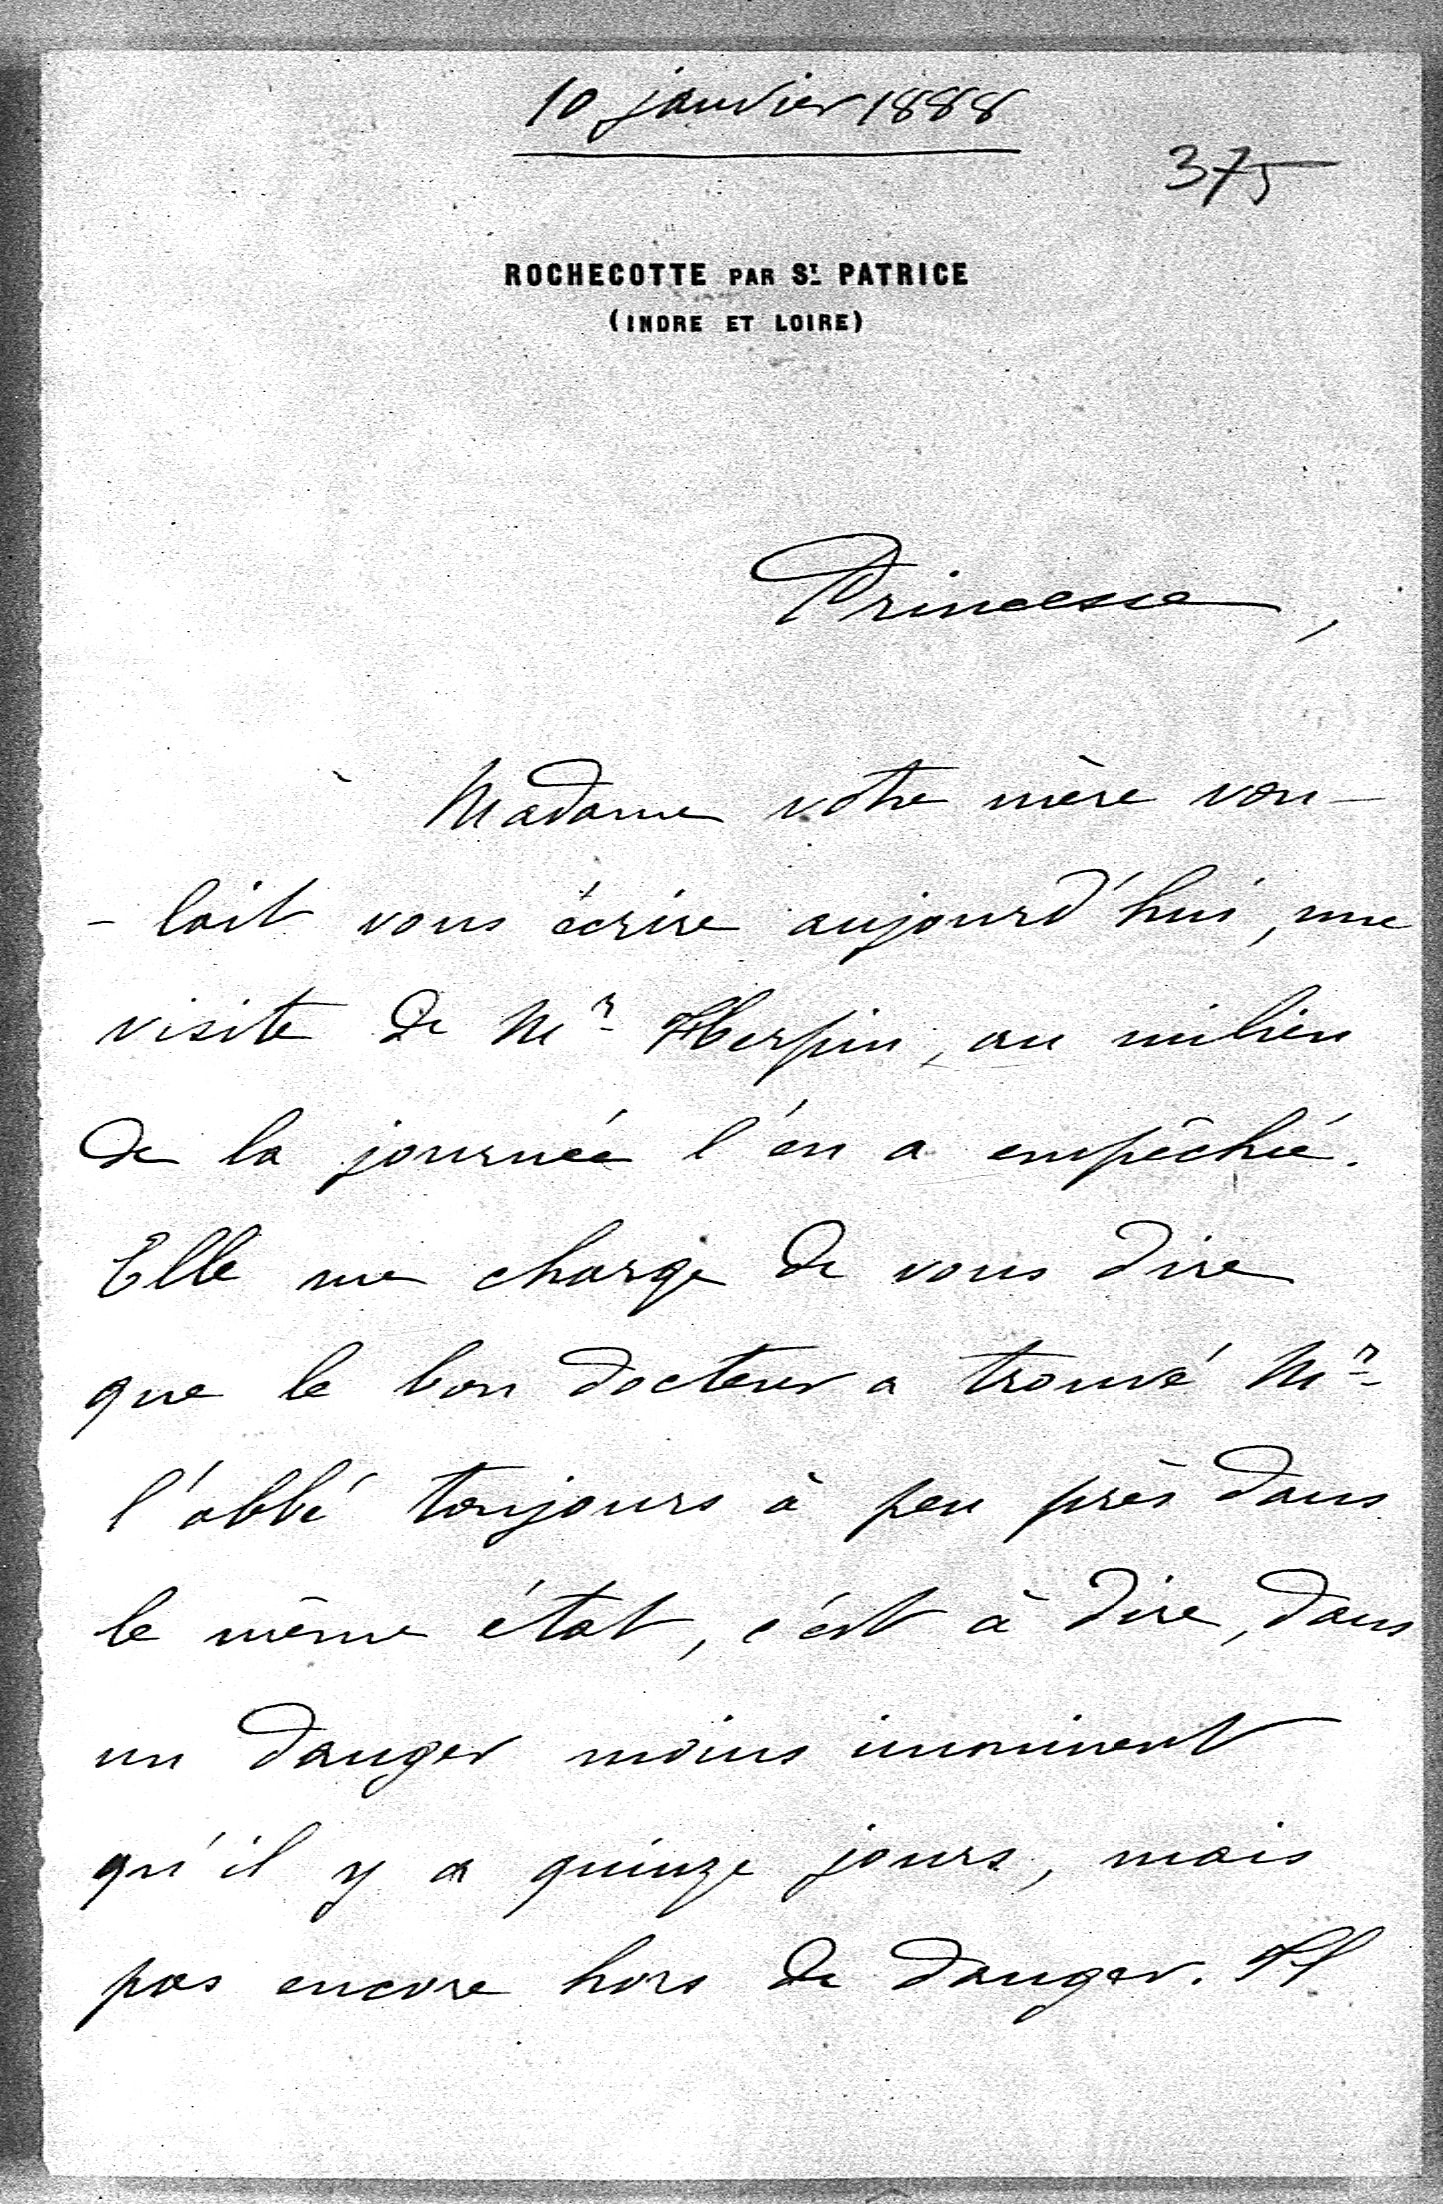 10 janvier 1888
375
ROCHECOTTE PAR ST PATRICE
(INDRE ET LOIRE)
Princesse,
Madame votre mère vou-
- lait vous écrire aujourd'hui, une
visite de Mr Herpin, au milieu
de la journée l'en a empêchée.
Elle me charge de vous dire
que le bon docteur a trouvé Mr
l'abbé toujours à peu près dans
le même état, c'est à dire, dans
un danger moins imminent
qu'il y a quinze jours, mais
pas encore hors de danger. Il